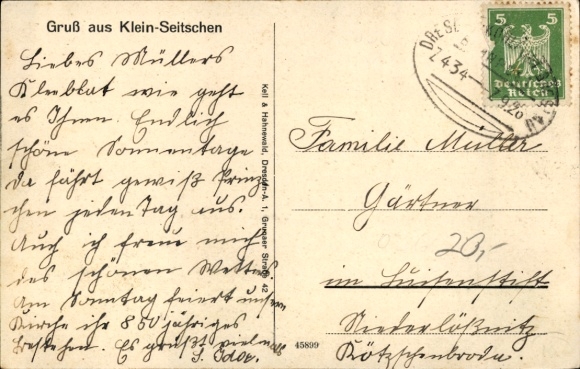 Gruß aus Klein-Seitschen
Liebes Müllers
Kleeblat wie geht
es Ihnen. Endlich
schöne Sonnentage
da fährt gewiß Prinz
chen jeden Tag aus.
Auch ich freue mich
des schönen Wetters
Am Sonntag feiert unsere
Kirche ihr 850 jähriges
Bestehen. Es grüßt vielmals
S.
Keil & Hahnewald, Dresden-A. 1, Grunaer Straße 42
45899
5 5
Deutsches
Reich
DRESD
Z 434
Familie Müller
Gärtner
20,-
im Luisenstift
Niederlößnitz
Kötzschenbroda.